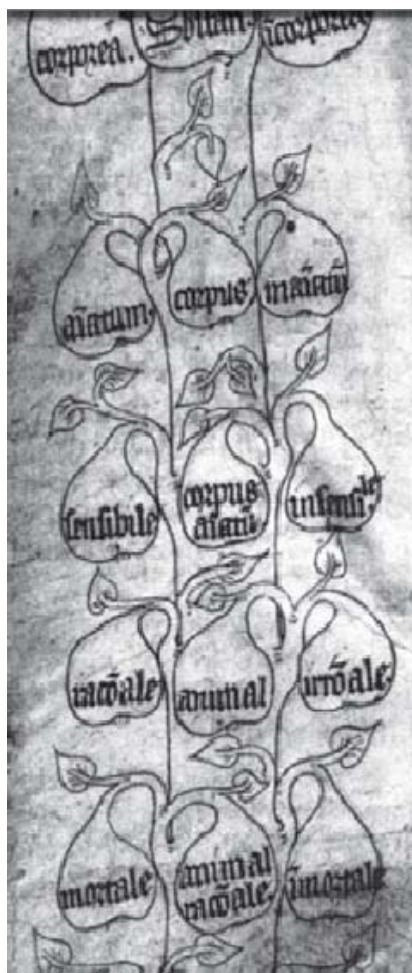 corporea.
īcorporea
aīatum.
corpus
inaīatū
sensibile
corpus
aīatū
insensi^le
racōale
animal
irrōale.
mortale
animal
racōale.
īmortale